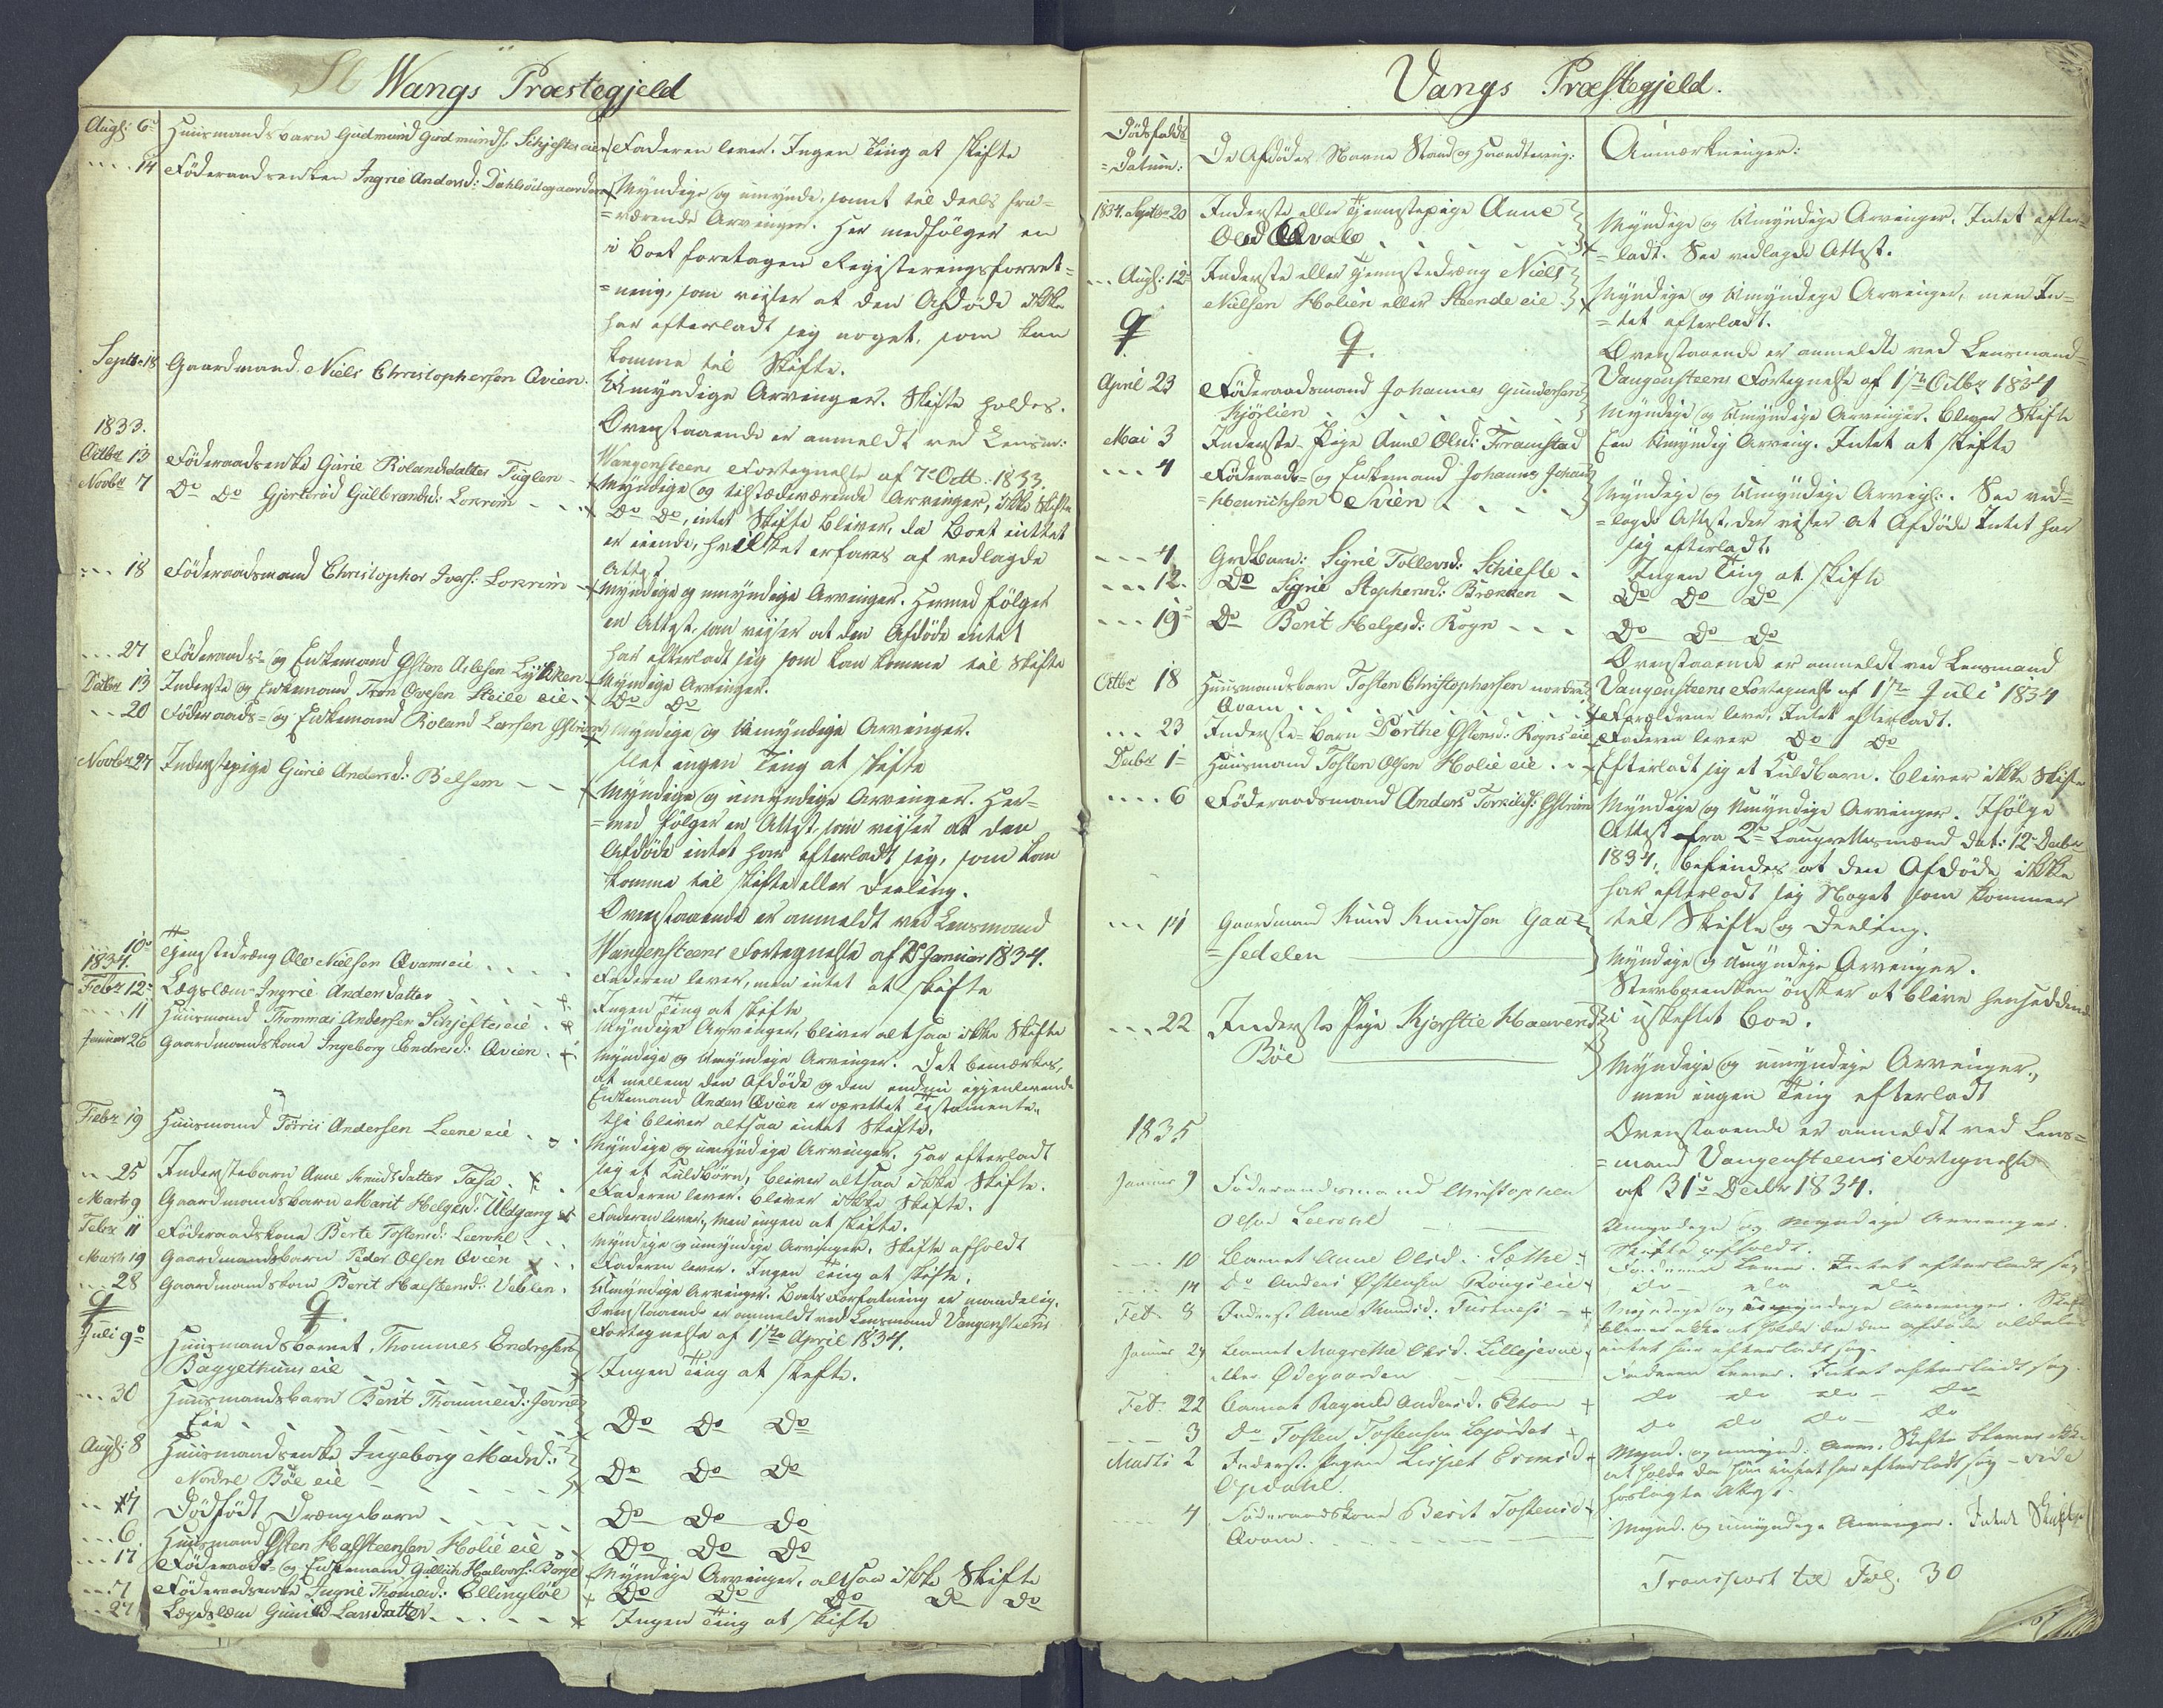 Wangs Præstegjeld
Augs: 6 Huusmandsbarn Gudmund Gudmunds: Schjeftes eie Faderen lever. Ingen Ting at skifte
14 Föderaadsenken Ingrie Andersd: Dahlsödegaarden Myndige og umynd., samt til deels fra-
=værende Arvinger. Her medfölger en
i Boet foretagen Registeringsforret-
=ning, som viiser at den Afdöde ikke
har efterladt sig noget, som kan
komme til Skifte.
Septbr 18 Gaardmand Niels Christophersen Qvien. Umyndige Arvinger. Skifte holdes.
Ovenstaaende er anmeldt ved Lensm:
Wangensteens Fortegnelse af 7de Octb: 1833.
1833.
Octbr 13 Föderaadsenke Gurie Rolandsdatter Fuglen Myndige og tilstædeværende Arvinger, ikke Skifte
Novbr 7 Do Do Gjertrud Gulbrandsd: Lokrim Do Do, intet Skifte bliver, da Boet intet
er eiende, hvilket erfares af vedlagde
Attest
18 Föderaadsmand Christopher Ivers: Lokrim Myndige og umyndige Arvinger. Hermed fölger
en Attest, som viiser at den Afdöde intet
har efterladt sig som kan komme til Skifte
27 Föderaads- og Enkemand Østen Aslesen Lykken Myndige Arvinger.
Decbr 13 Inderste og Enkemand Tron Ovesen Steile eie Do Do
20 Föderaads- og Enkemand Roland Larsen Østrem Myndige og Umyndige Arvinger.
slet ingen Ting at skifte
Novbr 27 Inderstepige Gurie Andersd: Belsem Myndige og umyndige Arvinger. Her-
=med fölger en Attest, som viiser at den
Afdöde intet har efterladt sig, som kan
komme til skifte eller Deeling.
Ovenstaaende er anmeldt ved Lensmand
Wangensteens Fortegnelse af Januar 1834.
1834. 10 Tjenestedreng Ole Nielsen Qvams eie Faderen lever, men intet at skifte
Febr 12 Lægslem Ingrie Andersdatter Ingen Ting at skifte
11 Huusmand Thommas Andersen Schjeftes eie Myndige Arvinger, bliver altsaa ikke Skifte
Januar 26 Gaardmandskone Ingeborg Endresd: Qvien Myndige og Umyndige Arvinger. Det bemærkes,
at mellem den Afdöde og den endnu igjenlevende
Enkemand Anders Qvien er oprettet Testamente,
thi bliver altsaa intet Skifte.
Febr 19 Huusmand Torris Andersen Leene eie Myndige og umyndige Arvinger. Har efterladt
sig et Kuldbörn, bliver altsaa ikke Skifte.
25 Inderstebarn Anne Knudsdatter Tasa Faderen lever. bliver ikke Skifte.
Marts 9 Gaardmandsbarn Marit Helgesd: Uldgang Faderen lever, men ingen at skifte.
Febr 11 Föderaadskone Berte Tostensd: Leerohl Myndige og umyndige Arvinger. Skifte afholdt
Marts 19 Gaardmandsbarn Peder Olsen Qvien Faderen lever. Ingen Ting at skifte.
28 Gaardmandskone Berit Halsteensd: Veblen Umyndige Arvinger. Boets Forfatning er maadelig.
Ovenstaaende er anmeldt ved Lensmand Vangensteens
Fortegnelse af 1ste April 1834.
Juli 9 Huusmandsbarnet Thommes Endresen
Baggethuns eie Ingen Ting at skifte.
30 Huusmandsbarn Berit Thommesd:
Eie Do Do Do
Augs: 8 Huusmandsenke Ingeborg Madsd:
Nordre Böe eie Do Do Do
17 Dödfödt Drængebarn Do Do Do
6 Huusmand Østen Halsteensen Holie eie Do Do Do
17 Föderaads- og Enkemand Gullich Halvors: Börge Myndige Arvinger, altsaa ikke Skifte
7 Föderaadsenke Ingrie Thomesd: Ellingböe Do Do Do Do Do
27 Lægdslem Gunild Larsdatter Ingen Ting at skifte
Vangs Præstegjeld.
Dödsfalds
=Datum: De Afdödes Navne Stand og Haandtering: Anmærkninger:
1834. Septbr 20 Inderste eller Tjenestepige Anne
Olsd Qvale Myndige og Umyndige Arvinger. Intet efter-
=ladt. See vedlagde Attest.
Augs: 12 Inderste eller Tjenestedreng Niels
Nielsen Holien eller Steende eie Myndige og Umyndige Arvinger, men In-
=tet efterladt.
Ovenstaaende er anmeldte ved Lensmand
Vangensteens Fortegnelse af 1ste Octbr 1834
April 23 Föderaadsmand Johannes Gundersen
Kjörlien Myndige og Umyndige Arvinger. bliver Skifte
Mai 3 Inderste Pige Anne Olsd: Framstad Een Umyndig Arving. Intet at skifte
4 Föderaads- og Enkemand Johannes Johan
=Henrichsen Qvien Myndige og Umyndige Arvigs:. See ved-
=lagde Attest, der viser at Afdöde Intet har
sig efterladt.
4 GrdBarn: Sigrie Tollevsd: Schiefte Ingen Ting at skifte
12 Do Sigrie Stephensd: Brænden Do Do Do
19 Do Berit Helgesd: Rogn Do Do Do
Ovenstaaende er anmeldt ved Lensmand
Vangensteens Fortegnelse af 1ste Juli 1834
Octbr 18 Huusmandsbarn Tosten Christophersen nordre
Qvam Forældrene leve, Intet efterladt.
23 Inderste-barn Dorthe Østensd: Rogns eie Faderen lever Do Do
Decbr 1 Huusmand Tosten Olsen Holie eie Efterladt sig et Kuldbarn. bliver ikke Skifte
6 Föderaadsmand Anders Torkilds: Østrem Myndige og Umyndige Arvinger. Ifölge
Attest fra 2de Laugrettesmænd dat: 12 Decbr
1834, befindes at den Afdöde ikke
har efterladt sig Noget som kommer
til Skifte og Deeling.
14 Gaardmand Knud Knudsen Gaa-
=sedelen Myndige og Umyndige Arvinger.
Sterboeenken önsker at blive hensiddende
i uskiftet Boe.
22 Inderste Pige Kjerstie Haavends:
Böe Myndige og umyndige Arvinger,
men ingen Ting efterladt
Ovenstaaende er anmeldt ved Lens-
=mand Vangensteens Fortegnelse
af 31te Decbr 1834.
1835
Januar 9 Föderaadsmand Christophen
Olsen Leerohl Umyndige og Myndige Arvinger.
Skifte afholdt.
10 Barnet Anne Olsd: Sæthe Faderen lever. Intet efterladt sig
14 Do Anders Østensen Rongs eie do do do
Feb. 8 Inderst Anne Knudsd: Myndige og Umyndige Arvinger. Skifte
bliver ikke at holde da den afdöde aldeles
intet har efterladt sig.
Januar 29 Barnet Magrethe Olsd. Lillejevne
eller Ødegaarden Faderen lever. Intet efterladt sig.
Feb. 22 Barnet Ragnild Andersd. Elton do do do do
3 Do Tosten Tostensen do do do do
Marts 2 Inderst. Pigen Lisbet Ermisd
Opdahl Mynd. og umynd: Arv. Skifte bliver ikke
at holde da hun intet har efterladt sig – vide
4 Föderaadskone Berit Tostensd
Qvam Mynd. og umyndige Arvinger. Intet Skifte
Transport til Fol: 30